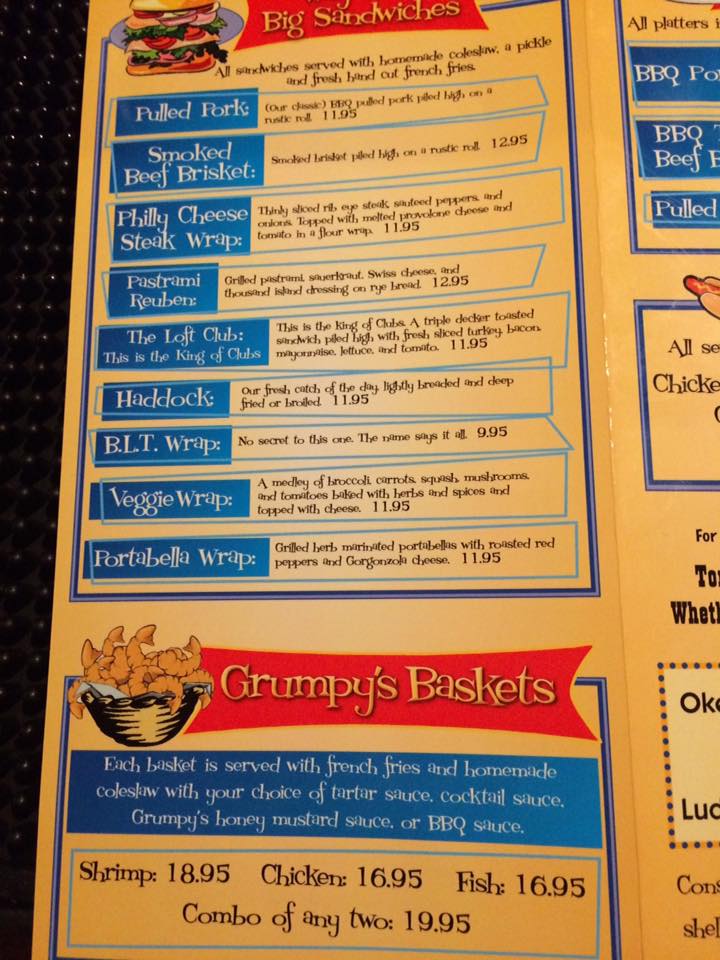 Big Sandwiches
All sandwiches served with homemade coleslaw, a pickle
and fresh hand cut french fries.
Pulled Pork:
(Our classic) BBQ pulled pork piled high on a
rustic roll. 11.95
Smoked
Beef Brisket:
Smoked brisket piled high on a rustic roll. 12.95
Philly Cheese
Steak Wrap:
Thinly sliced rib eye steak, sauteed peppers, and
onions. Topped with melted provolone cheese and
tomato in a flour wrap. 11.95
Pastrami
Reuben:
Grilled pastrami, sauerkraut, Swiss cheese, and
thousand island dressing on rye bread. 12.95
The Loft Club:
This is the King of Clubs
This is the King of Clubs. A triple decker toasted
sandwich piled high with fresh sliced turkey, bacon,
mayonnaise, lettuce, and tomato. 11.95
Haddock:
Our fresh catch of the day, lightly breaded and deep
fried or broiled. 11.95
B.L.T. Wrap:
No secret to this one. The name says it all. 9.95
Veggie Wrap:
A medley of broccoli, carrots, squash, mushrooms,
and tomatoes baked with herbs and spices and
topped with cheese. 11.95
Portabella Wrap:
Grilled herb marinated portabellas with roasted red
peppers and Gorgonzola cheese. 11.95
Grumpy's Baskets
Each basket is served with french fries and homemade
coleslaw with your choice of tartar sauce, cocktail sauce,
Grumpy's honey mustard sauce, or BBQ sauce.
Shrimp: 18.95 Chicken: 16.95 Fish: 16.95
Combo of any two: 19.95
All platters
BBQ
BBQ
Beef
Pulled
All
For